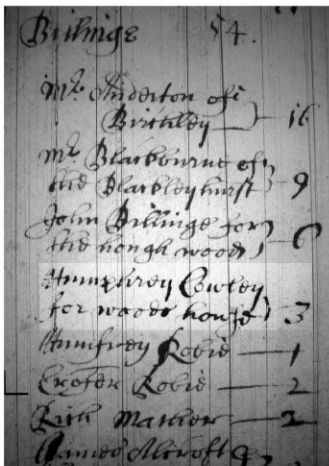 Billinge 54.
Mr. Anderton of
Birchley — 16
Mr. Blackbourne of
the Blackley hurst 9
John Billinge for
the hough wood 6
Humphrey Cowley
for woods house 3
Humfrey Robie — 1
Robie — 2
Rich Mather — 2
James Alcroft